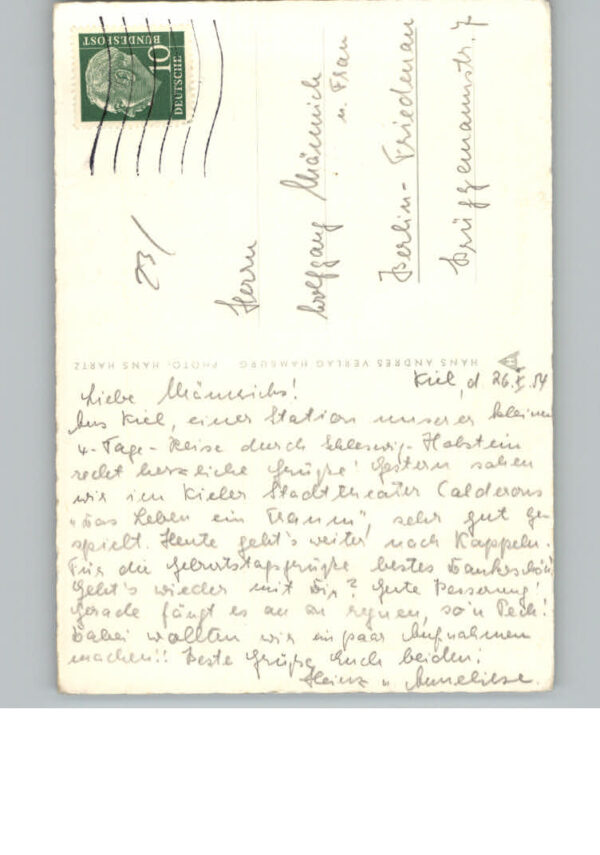 DEUTSCHE
BUNDESPOST
10
23/
Herrn
Wolfgang Männich
u. Frau
Berlin-Friedenau
Brüggemannstr. 7
HANS ANDRES VERLAG HAMBURG PHOTO: HANS HARTZ
Kiel, d. 26.X.54
Liebe Männichs!
Aus Kiel, einer Station unserer kleinen
4-Tage-Reise durch Schleswig-Holstein
recht herzliche Grüße! Gestern sahen
wir im Kieler Stadttheater Calderons
"Das Leben ein Traum", sehr gut ge-
spielt. Heute geht's weiter nach Kappeln.
Für die Geburtstagsgrüße bestes Dankeschön!
Geht's wieder mit Dir? Gute Besserung!
Gerade fängt es an zu regnen, so'n Pech!
Dabei wollten wir ein paar Aufnahmen
machen!! Beste Grüße Euch beiden!
Heinz u. Anneliese.